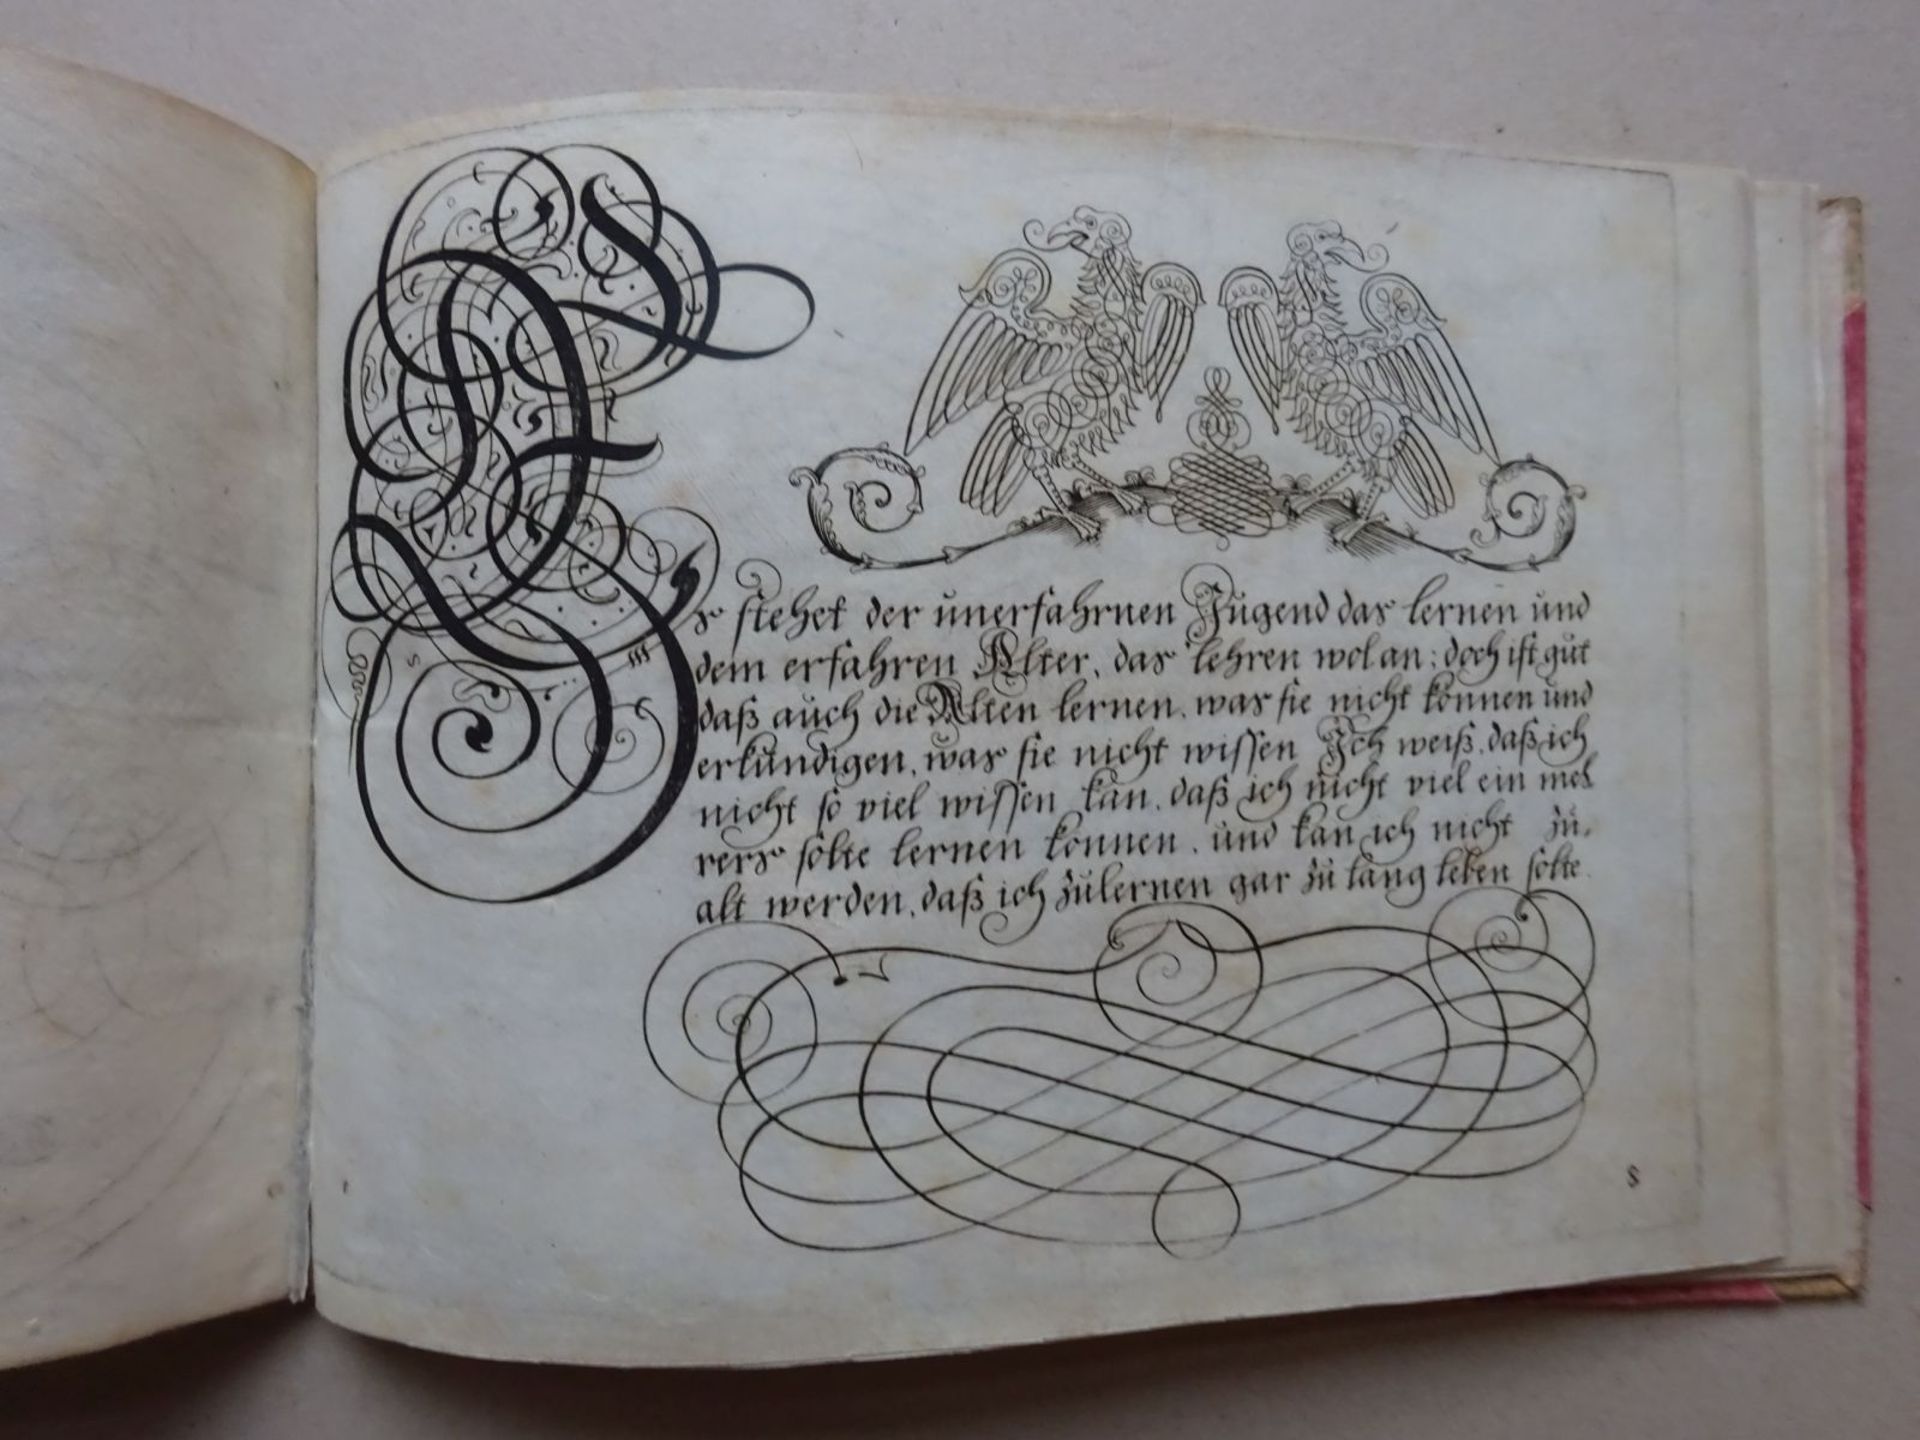 Es stehet der unerfahrnen Jugend das lernen und
dem erfahren Alter, das lehren wol an: doch ist gut
daß auch die Alten lernen, was sie nicht können und
erkundigen, was sie nicht wissen Ich weiß, daß ich
nicht so viel wissen kan, daß ich nicht viel ein meh
rers solte lernen konnen, und kan ich nicht zu
alt werden, daß ich zulernen gar zu lang leben solte.